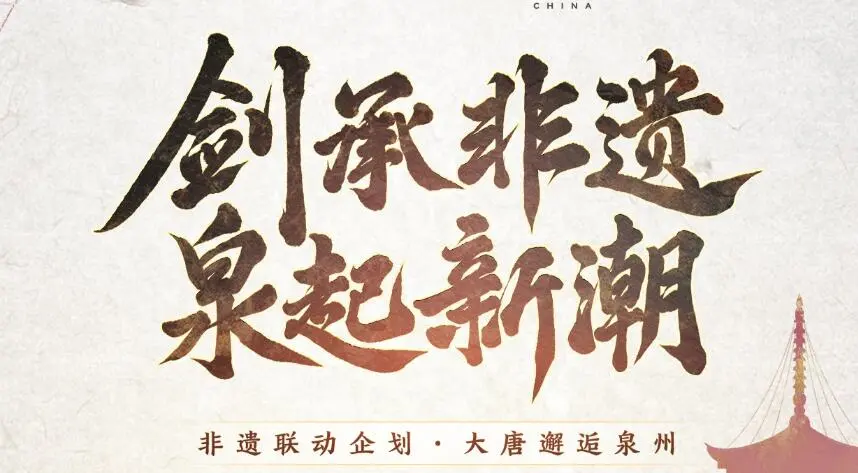 CHINA
剑承非遗
泉起新潮
非遗联动企划·大唐邂逅泉州